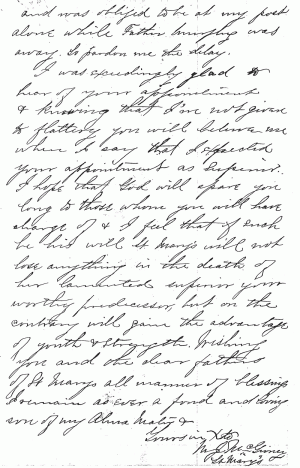 and was obliged to be at my post
alone while Father Murphy was
away. So pardon me the delay.
I was exceedingly glad to
hear of your appointment
& knowing that I'm not given
to flattery you will believe me
when I say that I expected
your appointment as Superior.
I hope that God will spare you
long to those whom you will have
charge of & I feel that if such
be his will St Marys will not
lose anything in the death of
her lamented superior your
worthy predecessor, but on the
contrary will gain the advantage
of youth & strength. Wishing
you and the dear fathers
of St Marys all manner of blessings
I remain as ever a fond and loving
son of my Alma Mater &
Yours in Xto
M. J. McGivney
St Mary's